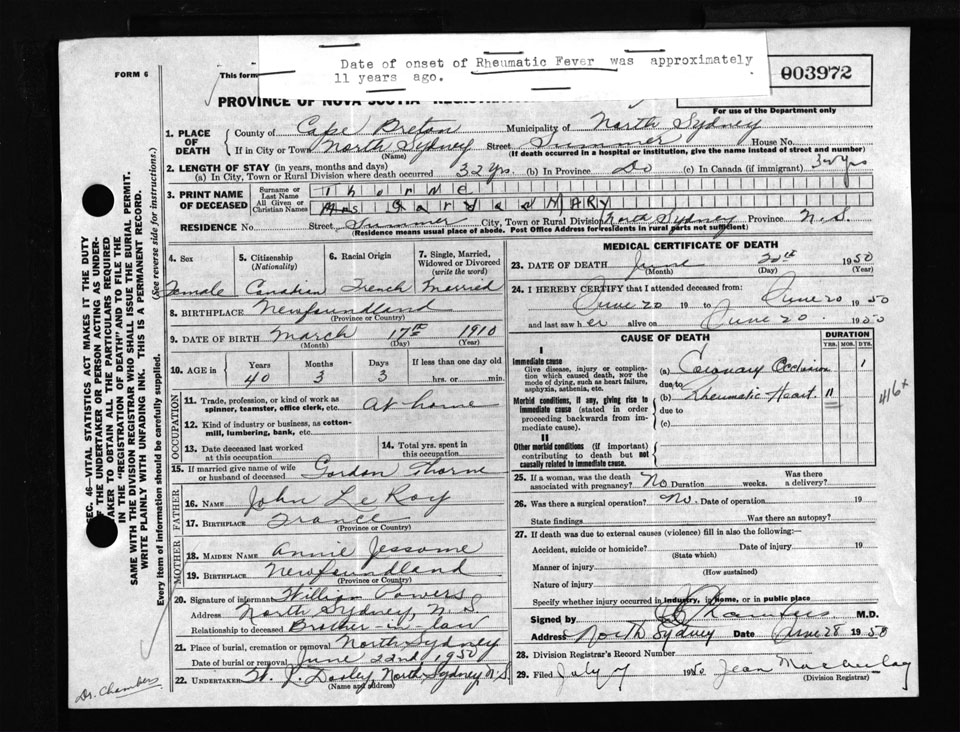 Date of onset of Rheumatic Fever was approximately
11 years ago.
FORM 6
This form
003972
PROVINCE OF NOVA SCOTIA
For use of the Department only
1. PLACE OF DEATH
County of Cape Breton Municipality of North Sydney
If in City or Town North Sydney Street Summer House No.
(Name) (If death occurred in a hospital or institution, give the name instead of street and number)
2. LENGTH OF STAY (in years, months and days)
(a) In City, Town or Rural Division where death occurred 32 yrs. (b) In Province Do (c) In Canada (if immigrant) 32 yrs
3. PRINT NAME OF DECEASED
Surname or Last Name Thorne
All Given or Christian Names Mrs Gordon MARY
RESIDENCE No. Street Summer City, Town or Rural Division North Sydney Province N.S.
(Residence means usual place of abode. Post Office Address for residents in rural parts not sufficient)
4. Sex
Female
5. Citizenship (Nationality)
Canadian
6. Racial Origin
French
7. Single, Married, Widowed or Divorced (write the word)
Married
8. BIRTHPLACE Newfoundland
(Province or Country)
9. DATE OF BIRTH March 17th 1910
(Month) (Day) (Year)
10. AGE in Years Months Days If less than one day old
40 3 3 hrs. or min.
OCCUPATION
11. Trade, profession, or kind of work as spinner, teamster, office clerk, etc. At home
12. Kind of industry or business, as cotton-mill, lumbering, bank, etc.
13. Date deceased last worked at this occupation
14. Total yrs. spent in this occupation
15. If married give name of wife or husband of deceased Gordon Thorne
FATHER
16. NAME John Le Roy
17. BIRTHPLACE France
(Province or Country)
MOTHER
18. MAIDEN NAME Annie Jessome
19. BIRTHPLACE Newfoundland
(Province or Country)
20. Signature of informant William Powers
Address North Sydney, N.S.
Relationship to deceased Brother-in-law
21. Place of burial, cremation or removal North Sydney
Date of burial or removal June 22nd, 1950
22. UNDERTAKER Dooley North Sydney N.S.
(Name and address)
MEDICAL CERTIFICATE OF DEATH
23. DATE OF DEATH June 1950
(Month) (Day) (Year)
24. I HEREBY CERTIFY that I attended deceased from:
June 20 19 to June 20 1950
and last saw her alive on June 20 1950
CAUSE OF DEATH
DURATION
YRS. MOS. DYS.
I
Immediate cause
Give disease, injury or complication which caused death, NOT the mode of dying, such as heart failure, asphyxia, asthenia, etc.
(a) Coronary Occlusion 1
due to
Morbid conditions, if any, giving rise to immediate cause (stated in order proceeding backwards from immediate cause).
(b) Rheumatic Heart. 11
due to
(c)
416+
II
Other morbid conditions (if important) contributing to death but not causally related to immediate cause.
25. If a woman, was the death associated with pregnancy? No Duration weeks. Was there a delivery?
26. Was there a surgical operation? No. Date of operation 19
State findings Was there an autopsy?
27. If death was due to external causes (violence) fill in also the following:—
Accident, suicide or homicide? Date of injury 19
(State which)
Manner of injury
(How sustained)
Nature of injury
Specify whether injury occurred in industry, in home, or in public place
Signed by M.D.
Address North Sydney Date June 28 1950
28. Division Registrar's Record Number
29. Filed July 7 1950 Jean MacAulay
(Division Registrar)
SEC. 46—VITAL STATISTICS ACT MAKES IT THE DUTY
OF THE UNDERTAKER OR PERSON ACTING AS UNDER-
TAKER TO OBTAIN ALL THE PARTICULARS REQUIRED
IN THE "REGISTRATION OF DEATH" AND TO FILE THE
SAME WITH THE DIVISION REGISTRAR WHO SHALL ISSUE THE BURIAL PERMIT.
WRITE PLAINLY WITH UNFADING INK. THIS IS A PERMANENT RECORD.
Every item of information should be carefully supplied. (See reverse side for instructions.)
Dr. Chambers